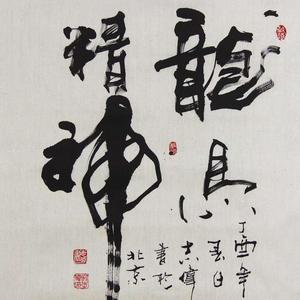 龍馬
精神
丁酉年
春日
書於
北京